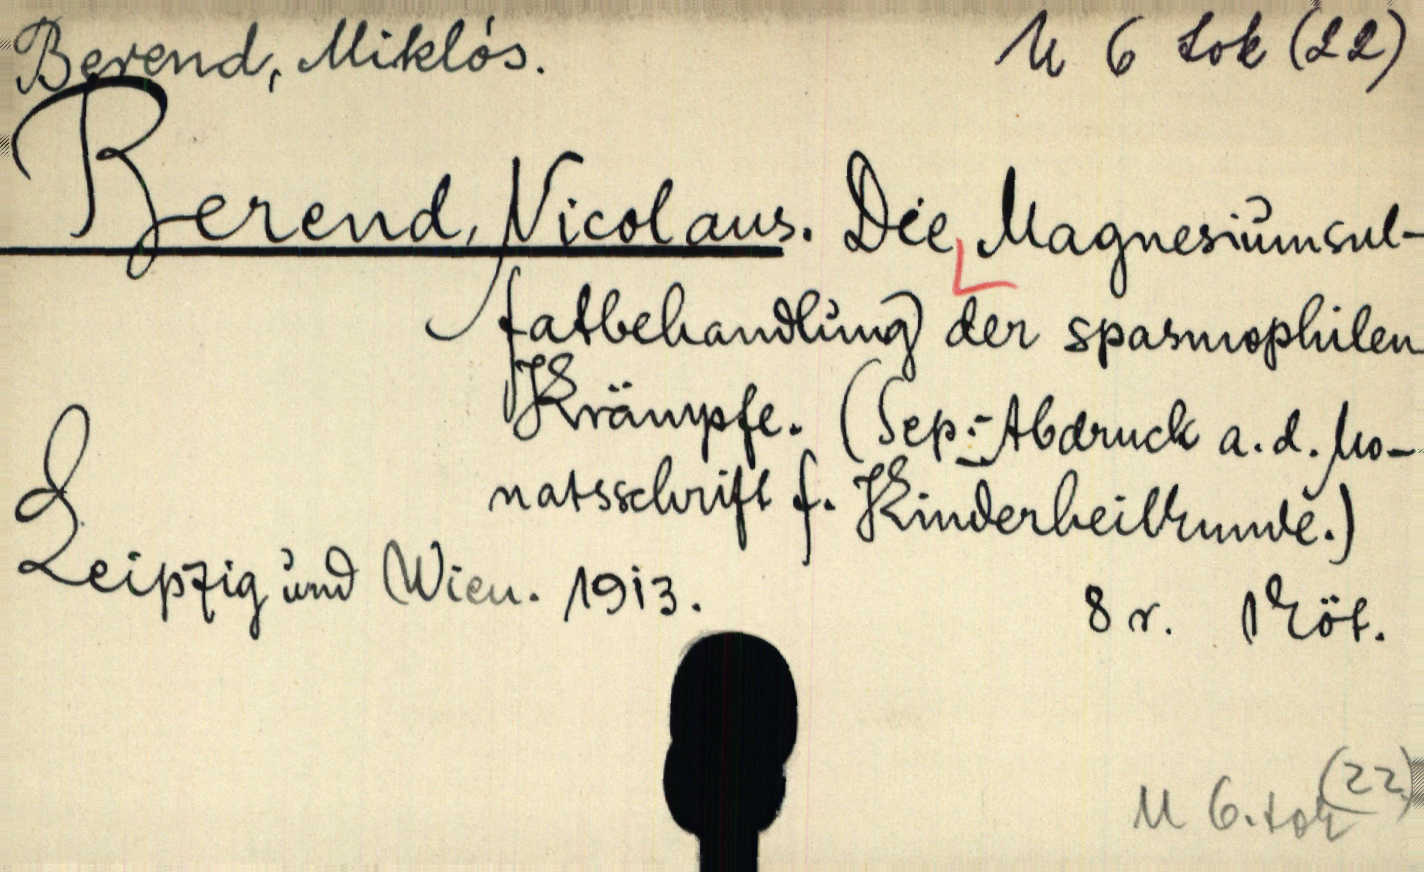 Berend, Miklós. M 6 tok (22)
Berend, Nicolaus. Die Magnesiumsul-
fatbehandlung der spasmophilen
Krämpfe. (Sep.-Abdruck a. d. Mo-
natsschrift f. Kinderheilkunde.)
Leipzig und Wien. 1913.
8 r. Köt.
M 6. tok (22)